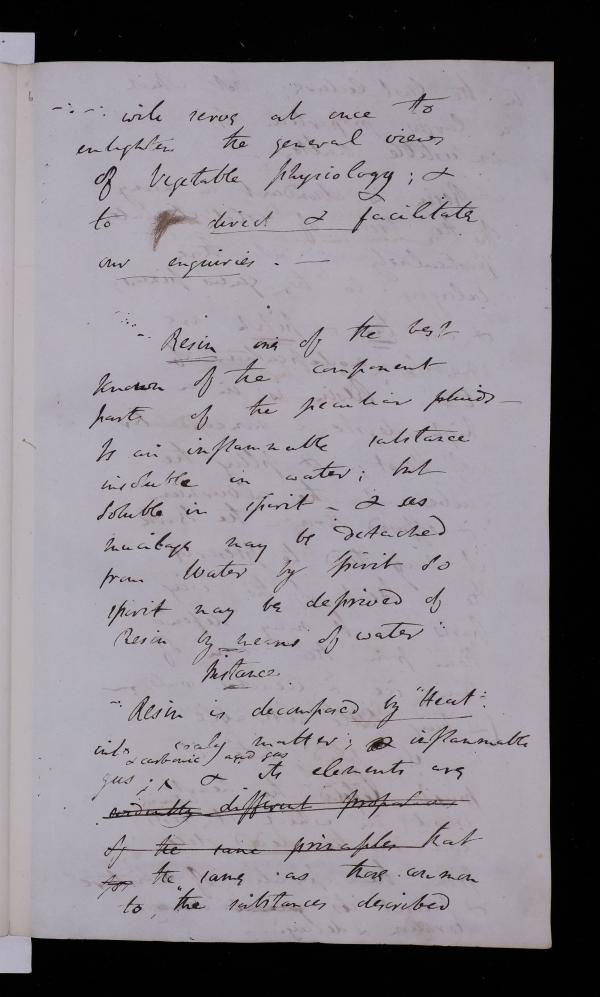 will serve at once to
enlighten the general views
of Vegetable physiology; &
to direct & facilitate
our enquiries. —
Resin one of the best
known of the component
parts of the peculiar fluids —
Is an inflammable substance
insoluble in water; but
soluble in spirit - & as
mucilage may be detached
from Water by Spirit so
spirit may be deprived of
Resin by means of water
Instance.
Resin is decomposed by "Heat"
into coaly matter; & inflammable
& carbonic acid gas
gas; & its elements are
evidently different proportions
of the same principles that
the same as those common
to the substances described